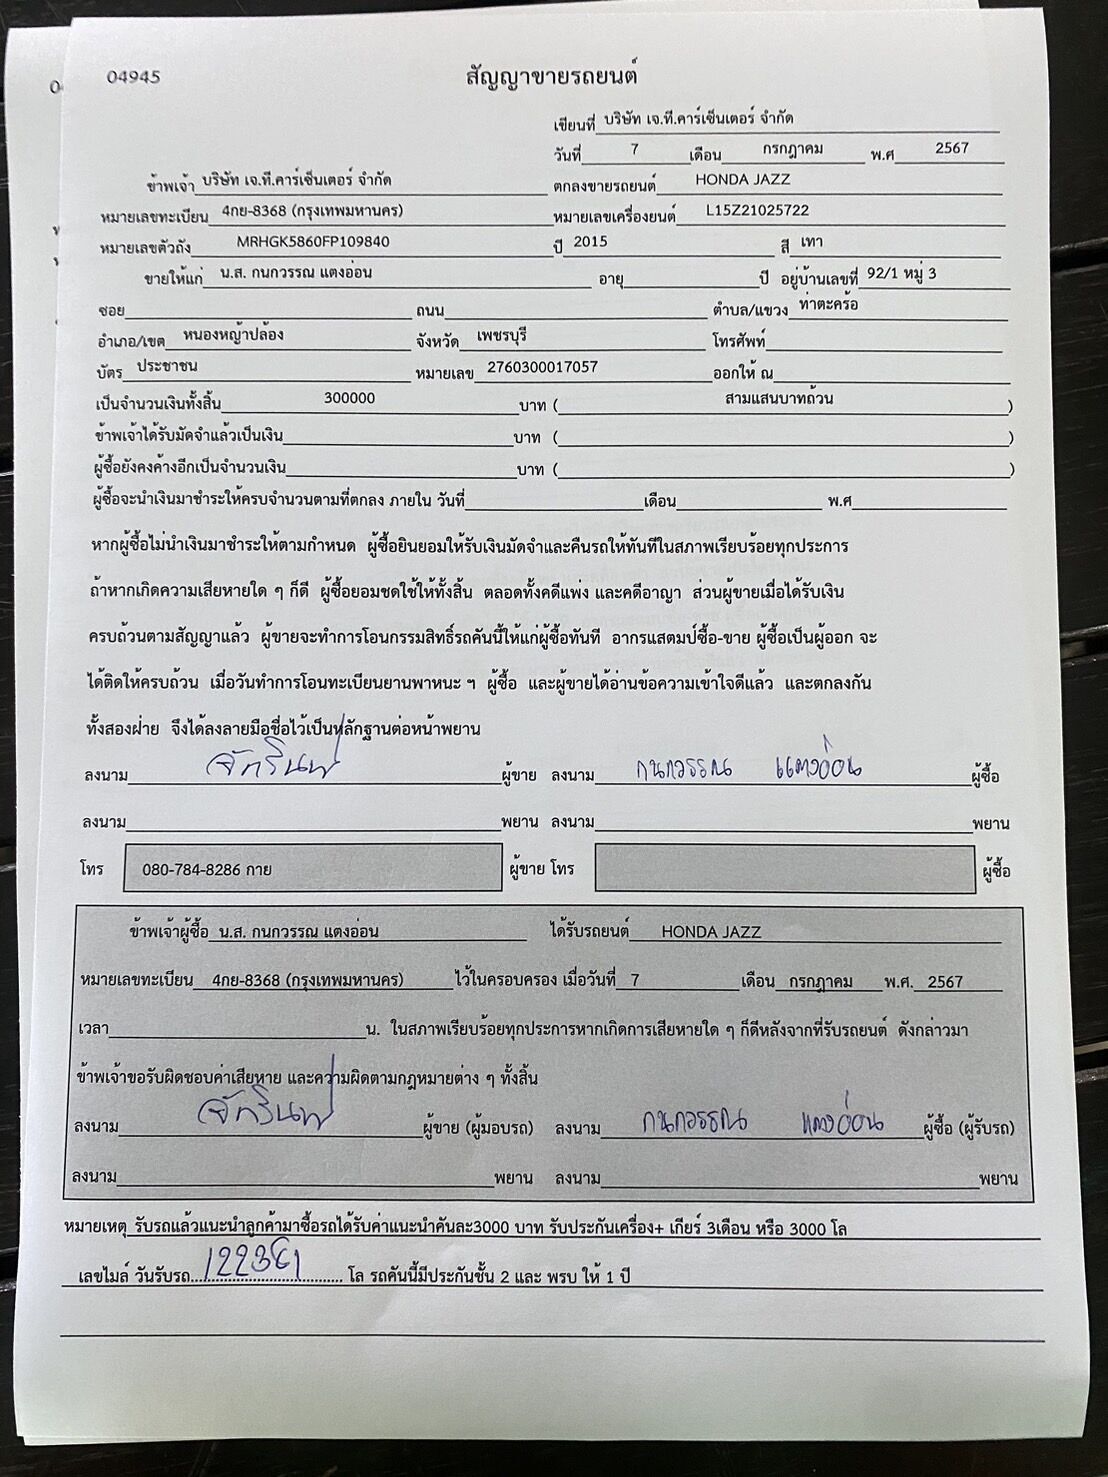 04945
สัญญาขายรถยนต์
เขียนที่ บริษัท เจ.ที.คาร์เซ็นเตอร์ จำกัด
วันที่ 7 เดือน กรกฎาคม พ.ศ 2567
ข้าพเจ้า บริษัท เจ.ที.คาร์เซ็นเตอร์ จำกัด ตกลงขายรถยนต์ HONDA JAZZ
หมายเลขทะเบียน 4กย-8368 (กรุงเทพมหานคร) หมายเลขเครื่องยนต์ L15Z21025722
หมายเลขตัวถัง MRHGK5860FP109840 ปี 2015 สี เทา
ขายให้แก่ น.ส. กนกวรรณ แตงอ่อน อายุ ปี อยู่บ้านเลขที่ 92/1 หมู่ 3
ซอย ถนน ตำบล/แขวง ท่าตะคร้อ
อำเภอ/เขต หนองหญ้าปล้อง จังหวัด เพชรบุรี โทรศัพท์
บัตร ประชาชน หมายเลข 2760300017057 ออกให้ ณ
เป็นจำนวนเงินทั้งสิ้น 300000 บาท ( สามแสนบาทถ้วน )
ข้าพเจ้าได้รับมัดจำแล้วเป็นเงิน บาท ( )
ผู้ซื้อยังคงค้างอีกเป็นจำนวนเงิน บาท ( )
ผู้ซื้อจะนำเงินมาชำระให้ครบจำนวนตามที่ตกลง ภายใน วันที่ เดือน พ.ศ
หากผู้ซื้อไม่นำเงินมาชำระให้ตามกำหนด ผู้ซื้อยินยอมให้รับเงินมัดจำและคืนรถให้ทันทีในสภาพเรียบร้อยทุกประการ
ถ้าหากเกิดความเสียหายใด ๆ ก็ดี ผู้ซื้อยอมชดใช้ให้ทั้งสิ้น ตลอดทั้งคดีแพ่ง และคดีอาญา ส่วนผู้ขายเมื่อได้รับเงิน
ครบถ้วนตามสัญญาแล้ว ผู้ขายจะทำการโอนกรรมสิทธิ์รถคันนี้ให้แก่ผู้ซื้อทันที อากรแสตมป์ซื้อ-ขาย ผู้ซื้อเป็นผู้ออก จะ
ได้ติดให้ครบถ้วน เมื่อวันทำการโอนทะเบียนยานพาหนะ ฯ ผู้ซื้อ และผู้ขายได้อ่านข้อความเข้าใจดีแล้ว และตกลงกัน
ทั้งสองฝ่าย จึงได้ลงลายมือชื่อไว้เป็นหลักฐานต่อหน้าพยาน
ลงนาม จักรินทร์ ผู้ขาย ลงนาม กนกวรรณ แตงอ่อน ผู้ซื้อ
ลงนาม พยาน ลงนาม พยาน
โทร 080-784-8286 กาย ผู้ขาย โทร ผู้ซื้อ
ข้าพเจ้าผู้ซื้อ น.ส. กนกวรรณ แตงอ่อน ได้รับรถยนต์ HONDA JAZZ
หมายเลขทะเบียน 4กย-8368 (กรุงเทพมหานคร) ไว้ในครอบครอง เมื่อวันที่ 7 เดือน กรกฎาคม พ.ศ. 2567
เวลา น. ในสภาพเรียบร้อยทุกประการหากเกิดการเสียหายใด ๆ ก็ดีหลังจากที่รับรถยนต์ ดังกล่าวมา
ข้าพเจ้าขอรับผิดชอบค่าเสียหาย และความผิดตามกฎหมายต่าง ๆ ทั้งสิ้น
ลงนาม จักรินทร์ ผู้ขาย (ผู้มอบรถ) ลงนาม กนกวรรณ แตงอ่อน ผู้ซื้อ (ผู้รับรถ)
ลงนาม พยาน ลงนาม พยาน
หมายเหตุ รับรถแล้วแนะนำลูกค้ามาซื้อรถได้รับค่าแนะนำคันละ3000 บาท รับประกันเครื่อง+ เกียร์ 3เดือน หรือ 3000 โล
เลขไมล์ วันรับรถ โล รถคันนี้มีประกันชั้น 2 และ พรบ ให้ 1 ปี